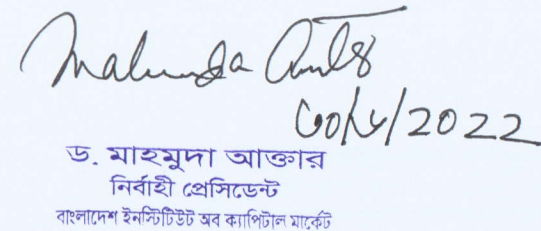 Mahmuda
/2022
ড. মাহমুদা আক্তার
নির্বাহী প্রেসিডেন্ট
বাংলাদেশ ইনস্টিটিউট অব ক্যাপিটাল মার্কেট